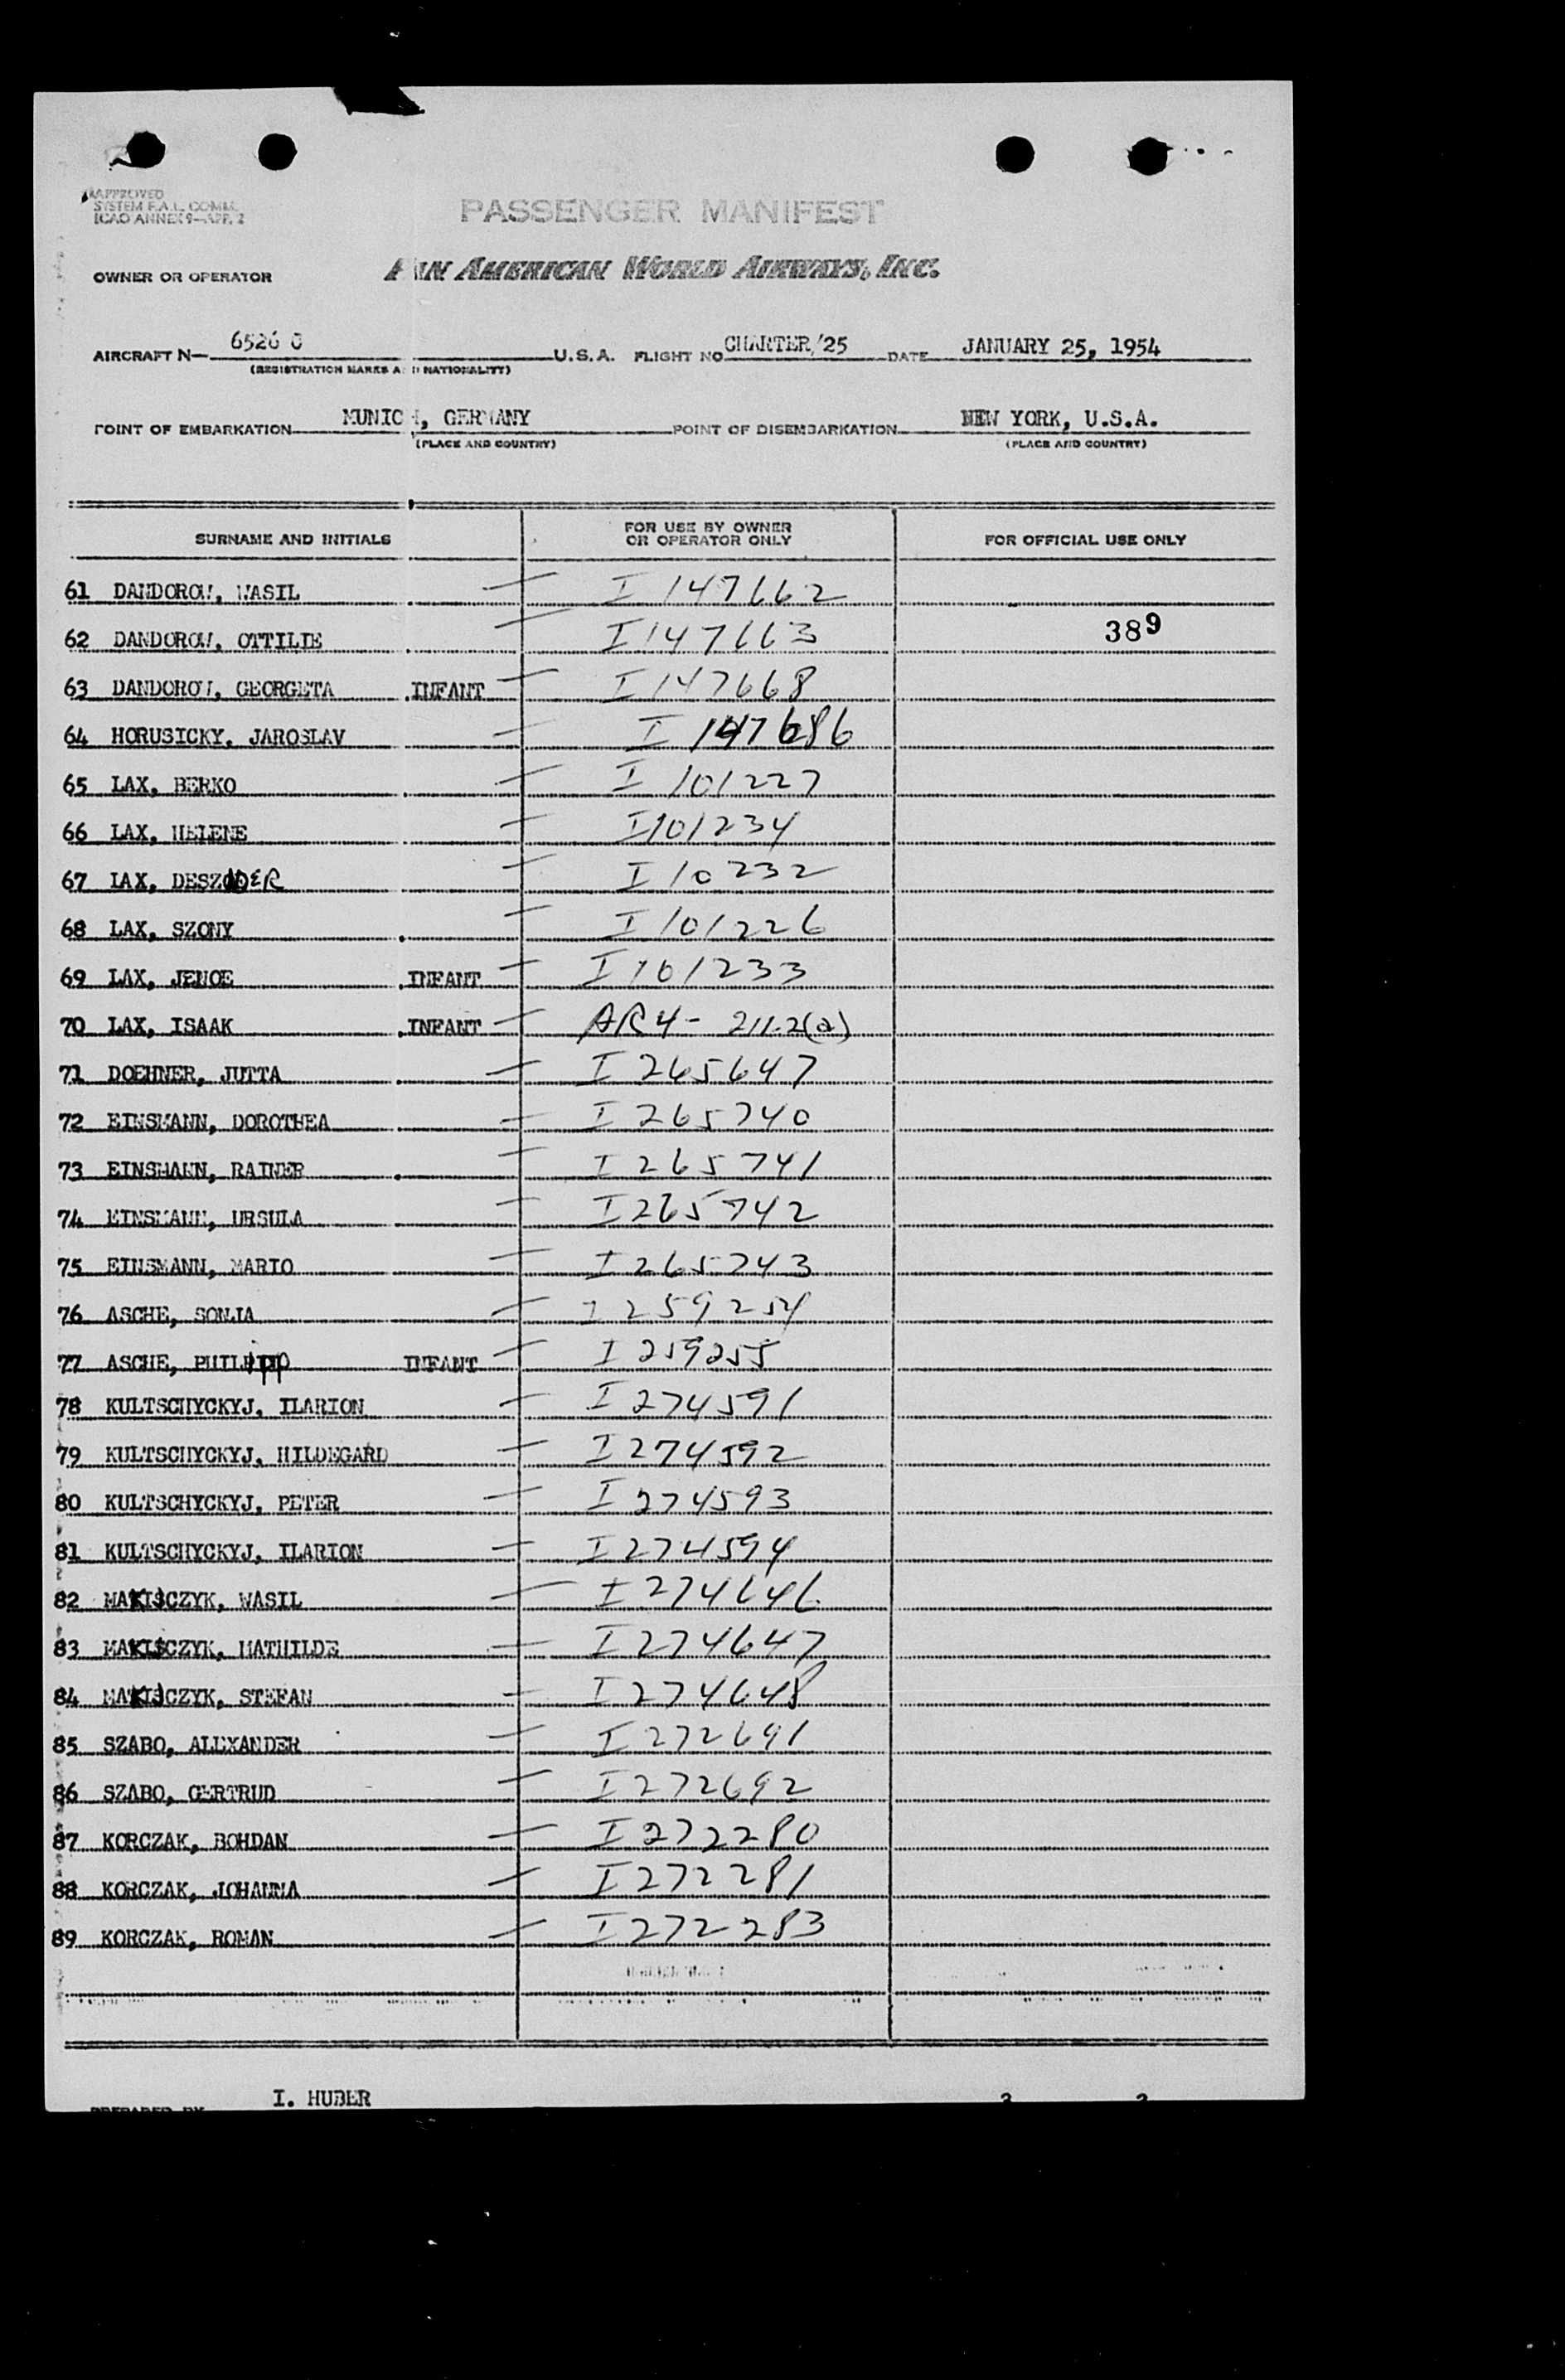 APPROVED
SYSTEM F.A.L. COMM.
ICAO ANNEX 9—APP. 2
PASSENGER MANIFEST
OWNER OR OPERATOR PAN AMERICAN WORLD AIRWAYS, INC.
AIRCRAFT N— 6526 C U.S.A. FLIGHT NO CHARTER/25 DATE JANUARY 25, 1954
(REGISTRATION MARKS AND NATIONALITY)
POINT OF EMBARKATION MUNICH, GERMANY POINT OF DISEMBARKATION NEW YORK, U.S.A.
(PLACE AND COUNTRY) (PLACE AND COUNTRY)
SURNAME AND INITIALS FOR USE BY OWNER OR OPERATOR ONLY FOR OFFICIAL USE ONLY
61 DANDOROW, WASIL I 147662
62 DANDOROW, OTTILIE I 147663 389
63 DANDOROW, GEORGETA INFANT I 147668
64 HORUSICKY, JAROSLAV I 147686
65 LAX, BERKO I 101227
66 LAX, HELENE I 101234
67 LAX, DESZOER I 10232
68 LAX, SZONY I 101226
69 LAX, JENOE INFANT I 101233
70 LAX, ISAAK INFANT AR 4- 211.2(a)
71 DOEHNER, JUTTA I 265647
72 EINSMANN, DOROTHEA I 265740
73 EINSMANN, RAINER I 265741
74 EINSMANN, URSULA I 265742
75 EINSMANN, MARIO I 265743
76 ASCHE, SONJA I 259254
77 ASCHE, PHILIPP INFANT I 259255
78 KULTSCHYCKYJ, ILARION I 274591
79 KULTSCHYCKYJ, HILDEGARD I 274592
80 KULTSCHYCKYJ, PETER I 274593
81 KULTSCHYCKYJ, ILARION I 274594
82 MAKISCZYK, WASIL I 274646
83 MAKISCZYK, MATHILDE I 274647
84 MAKISCZYK, STEFAN I 274648
85 SZABO, ALEXANDER I 272691
86 SZABO, GERTRUD I 272692
87 KORCZAK, BOHDAN I 272280
88 KORCZAK, JOHANNA I 272281
89 KORCZAK, ROMAN I 272283
PREPARED BY I. HUBER